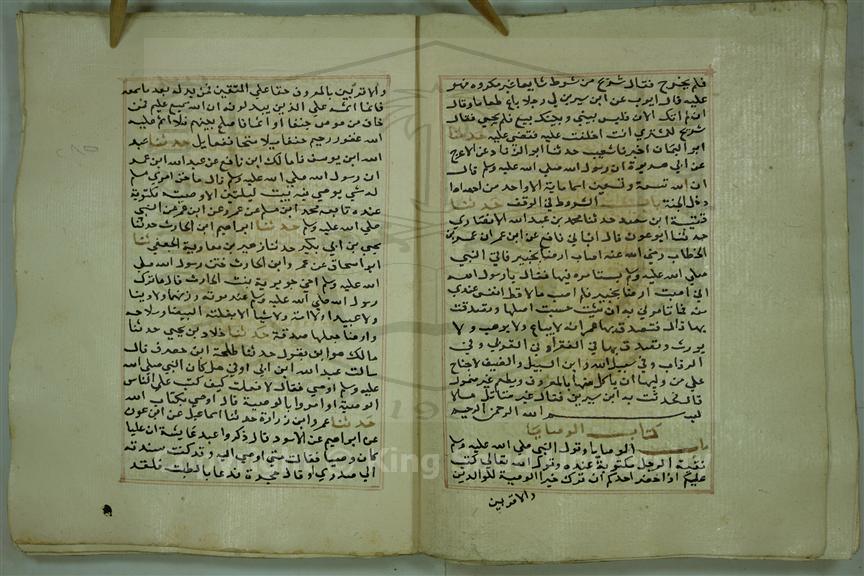 فلم يخرج فقال شريح من شرط على نفسه طايعا غير مكروه فهو
عليه قال ايوب عن ابن سيرين ان رجلا باع طعاما وقال
ان لم اتك الاربعا فليس بيني وبينك بيع فلم يجي فقال
شريح للمشتري انت اخلفت عليه فقضي عليه حدثنا
ابو اليمان اخبرنا شعيب حدثنا ابو الزناد عن الاعرج
عن ابي هريرة ان رسول الله صلي الله عليه وسلم قال
ان لله تسعة وتسعين اسما ماية الا واحد من احصاها
دخل الجنة باب الشروط في الوقف حدثنا
قتيبة ابن سعيد حدثنا محمد بن عبد الله الانصاري
حدثنا ابو عون قال انباني نافع عن ابن عمر ان عمر بن
الخطاب رضي الله عنه اصاب ارضا بخيبر فاتي النبي
صلي الله عليه وسلم يستامره فيها فقال يا رسول الله
اني اصبت ارضا بخيبر لم اصب مالا قط انفس عندي
منه فما تامر به قال ان شئت حبست اصلها وتصدقت
بها قال فتصدق بها عمر انه لا يباع ولا يوهب ولا
يورث وتصدق بها في الفقرا وفي القربي وفي
الرقاب وفي سبيل الله وابن السبيل والضيف لا جناح
علي من وليها ان ياكل منها بالمعروف ويطعم غير متمول
قال فحدثت به ابن سيرين فقال غير متاثل مالا
بسم الله الرحمن الرحيم
كتاب الوصايا
باب الوصايا وقول النبي صلي الله عليه وسلم
وصية الرجل مكتوبة عنده وقول الله تعالي كتب
عليكم اذا حضر احدكم ان ترك خيرا الوصية للوالدين
والاقربين
والاقربين بالمعروف حقا علي المتقين فمن بدله بعد ما سمعه
فانما اثمه علي الذين يبدلونه ان الله سميع عليم فمن
خاف من موص جنفا او اثما فاصلح بينهم فلا اثم عليه
الله غفور رحيم جنفا ميلا متجانف مايل حدثنا عبد
الله ابن يوسف انا مالك ابن نافع عن عبد الله ابن عمر
ان رسول الله صلي الله عليه وسلم قال ما حق امري مسلم
له شي يوصي فيه يبيت ليلتين الا ووصيته مكتوبة
عنده تابعه محمد ابن مسلم عن عمرو عن ابن عمر عن النبي
صلي الله عليه وسلم حدثنا ابراهيم ابن الحارث حدثنا
يحيي بن ابي بكير حدثنا زهير بن معاوية الجعفي ثنا
ابو اسحاق عن عمرو ابن الحارث ختن رسول الله صلي
الله عليه وسلم اخي جويرية بنت الحارث قال ما ترك
رسول الله صلي الله عليه وسلم عند موته درهما ولا دينارا
ولا عبدا ولا امة ولا شيا الا بغلته البيضا وسلاحه
وارضا جعلها صدقة حدثنا خلاد بن يحيي حدثنا
مالك هو ابن مغول حدثنا طلحة ابن مصرف قال
سالت عبد الله ابن ابي اوفي هل كان النبي صلي الله
عليه وسلم اوصي فقال لا فقلت كيف كتب علي الناس
الوصية او امروا بالوصية قال اوصي بكتاب الله
حدثنا عمرو ابن زرارة حدثنا اسماعيل عن ابن عون
عن ابراهيم عن الاسود قال ذكروا عند عايشة ان عليا
كان وصيا فقالت متي اوصي اليه وقد كنت مسندته
الي صدري او قالت حجري فدعا بالطست فلقد